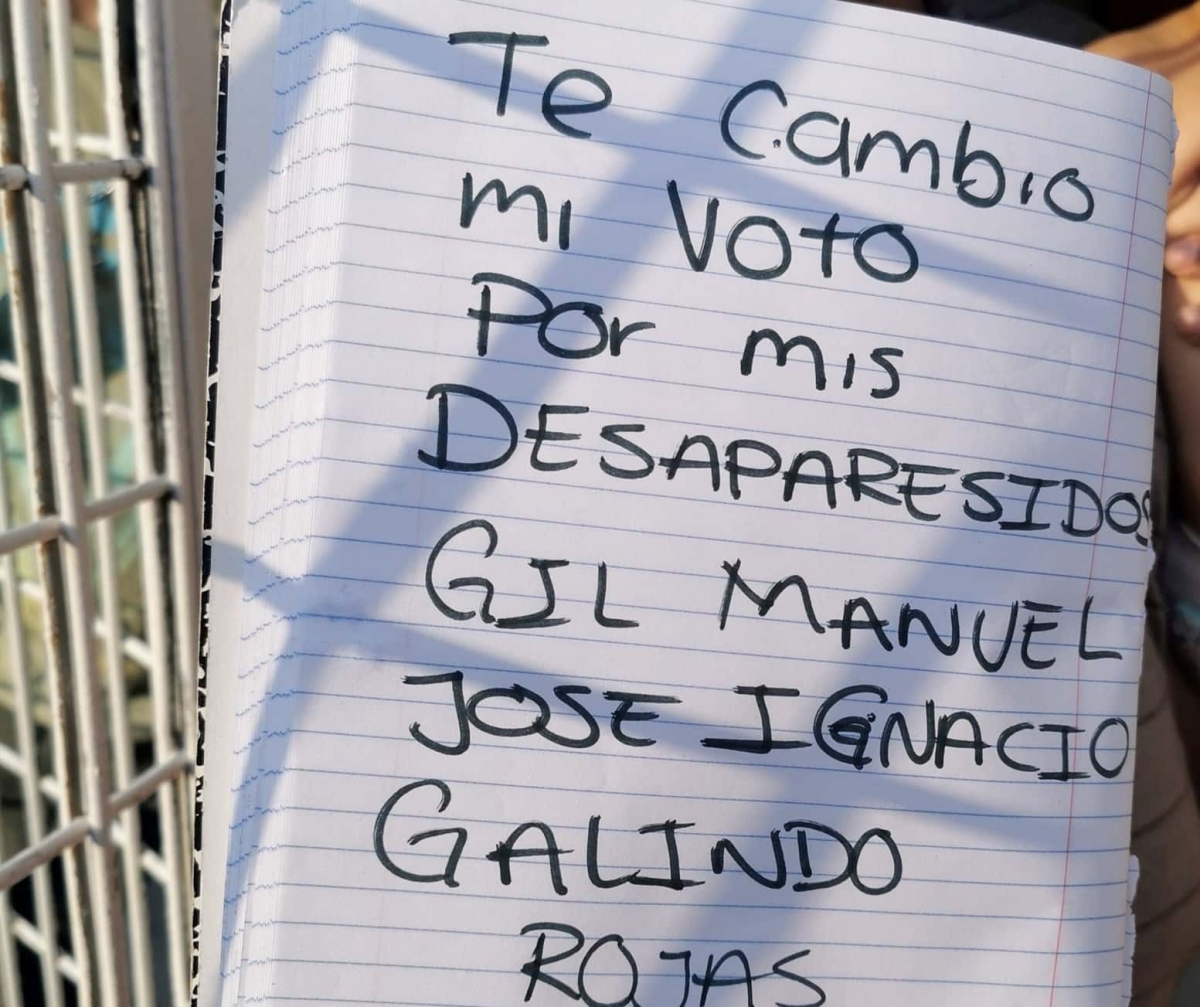 Te Cambio
mi Voto
Por mis
DESAPARESIDOS
GIL MANUEL
JOSE IGNACIO
GALINDO
ROJAS